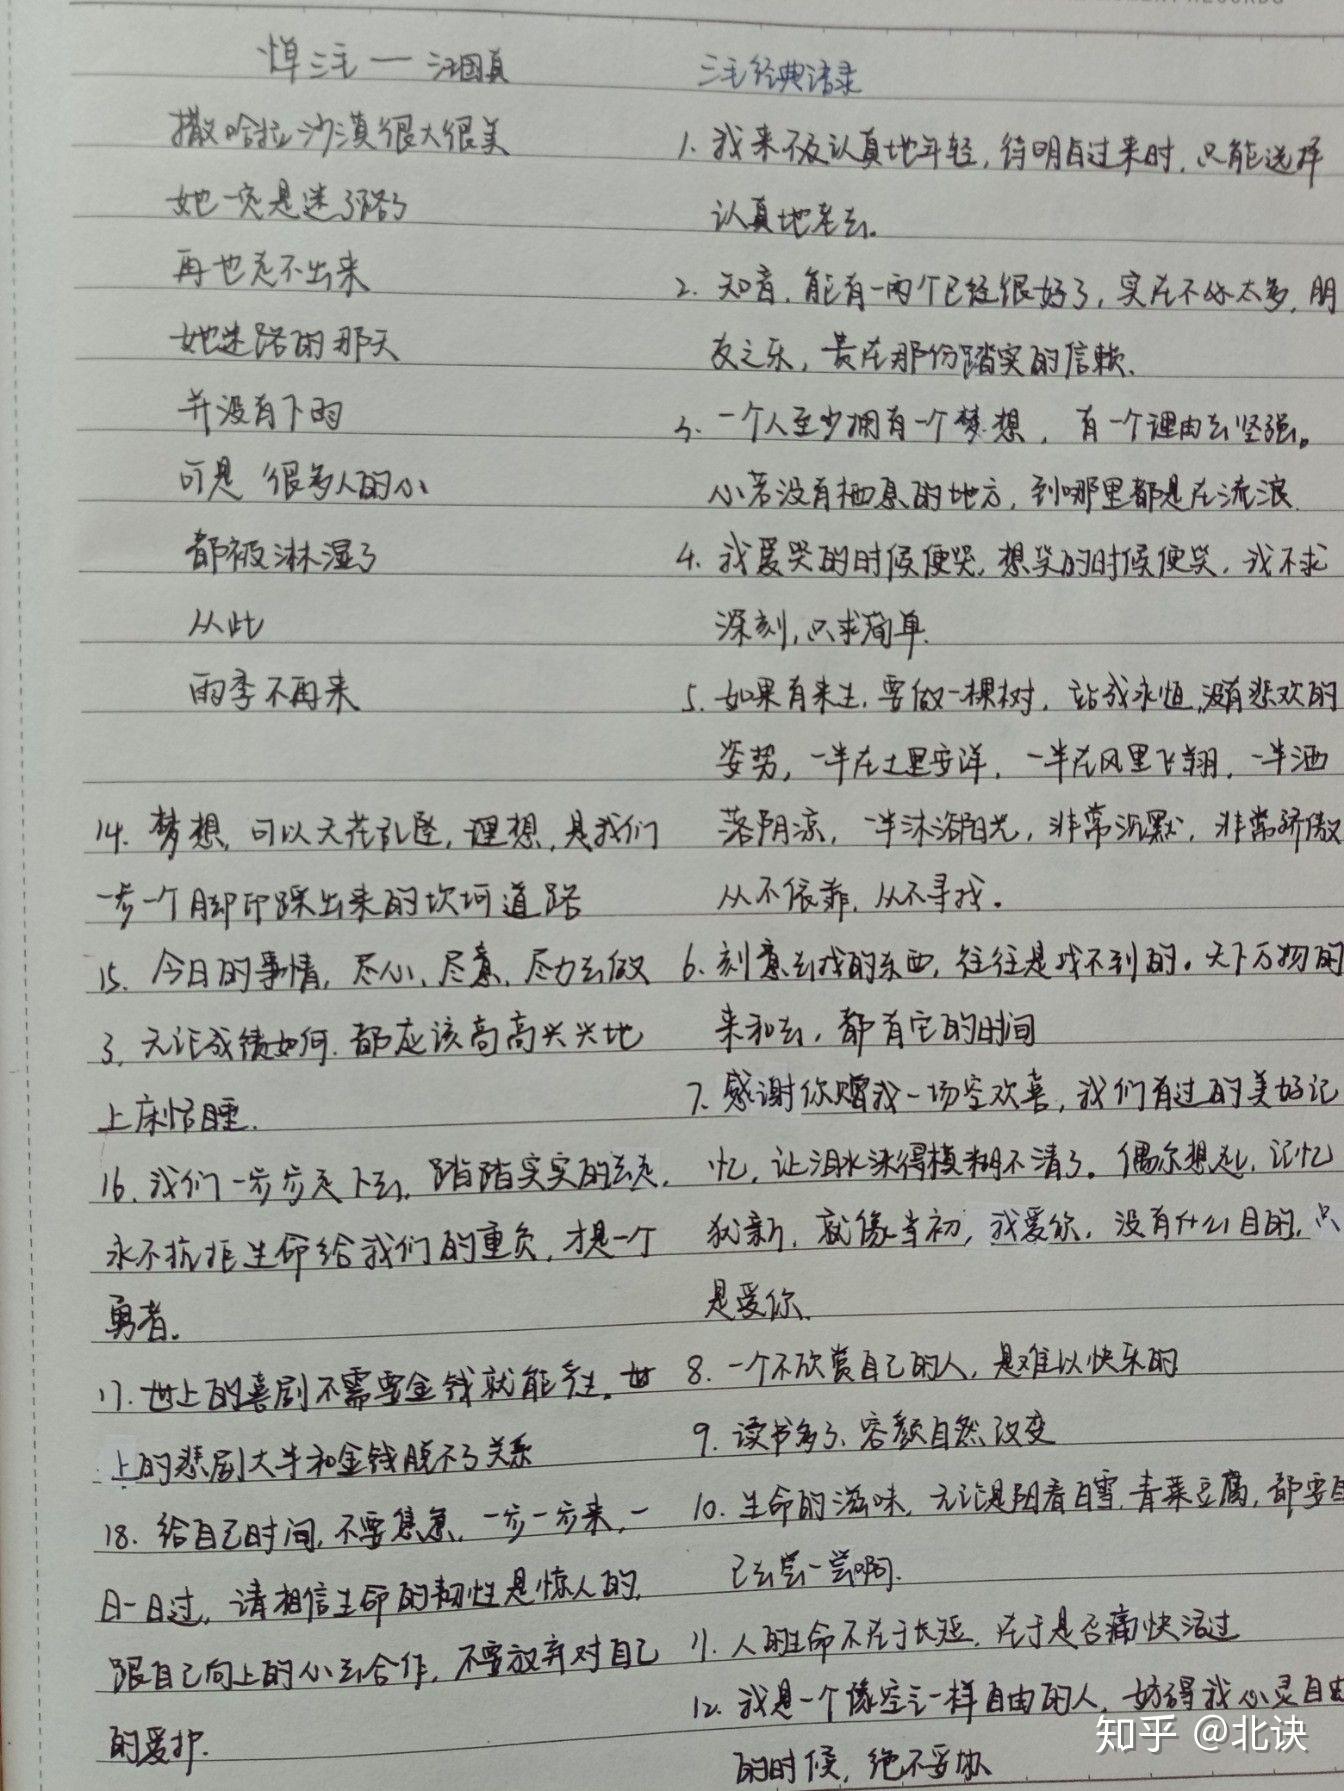 悼三毛——汪国真
撒哈拉沙漠很大很美
她一定是迷了路了
再也走不出来
她迷路的那天
并没有下雨
可是 很多人的心
都被淋湿了
从此
雨季不再来
三毛经典语录
1. 我来不及认真地年轻,待明白过来时,只能选择
认真地老去。
2. 知音,能有一两个已经很好了,实在不必太多,朋
友之乐,贵在那份踏实的信赖.
3. 一个人至少拥有一个梦想,有一个理由去坚强。
心若没有栖息的地方,到哪里都是在流浪.
4. 我爱哭的时候便哭,想笑的时候便笑,我不求
深刻,只求简单.
5. 如果有来生,要做一棵树,站成永恒,没有悲欢的
姿势,一半在土里安详,一半在风里飞翔,一半洒
落阴凉,一半沐浴阳光,非常沉默,非常骄傲
从不依靠,从不寻找。
6. 刻意去找的东西,往往是找不到的。天下万物的
来和去,都有它的时间
7. 感谢你赠我一场空欢喜,我们有过的美好记
忆,让泪水染得模糊不清了。偶尔想起,记忆
犹新,就像当初,我爱你,没有什么目的,只
是爱你.
8. 一个不欣赏自己的人,是难以快乐的
9. 读书多了,容颜自然改变
10. 生命的滋味,无论是阳春白雪,青菜豆腐,都要自
己去尝一尝啊.
11. 人的生命不在于长短,在于是否痛快活过
12. 我是一个像空气一样自由的人,妨碍我心灵自由
的时候,绝不妥协
14. 梦想,可以天花乱坠,理想,是我们
一步一个脚印踩出来的坎坷道路
15. 今日的事情,尽心、尽意、尽力去做
了,无论成绩如何,都应该高高兴兴地
上床恬睡.
16. 我们一步步走下去,踏踏实实的去走,
永不抗拒生命给我们的重负,才是一个
勇者.
17. 世上的喜剧不需要金钱就能产生,世
上的悲剧大半和金钱脱不了关系
18. 给自己时间,不要焦急,一步一步来,一
日一日过,请相信生命的韧性是惊人的,
跟自己向上的心去合作,不要放弃对自己
的爱护.
知乎 @北诀